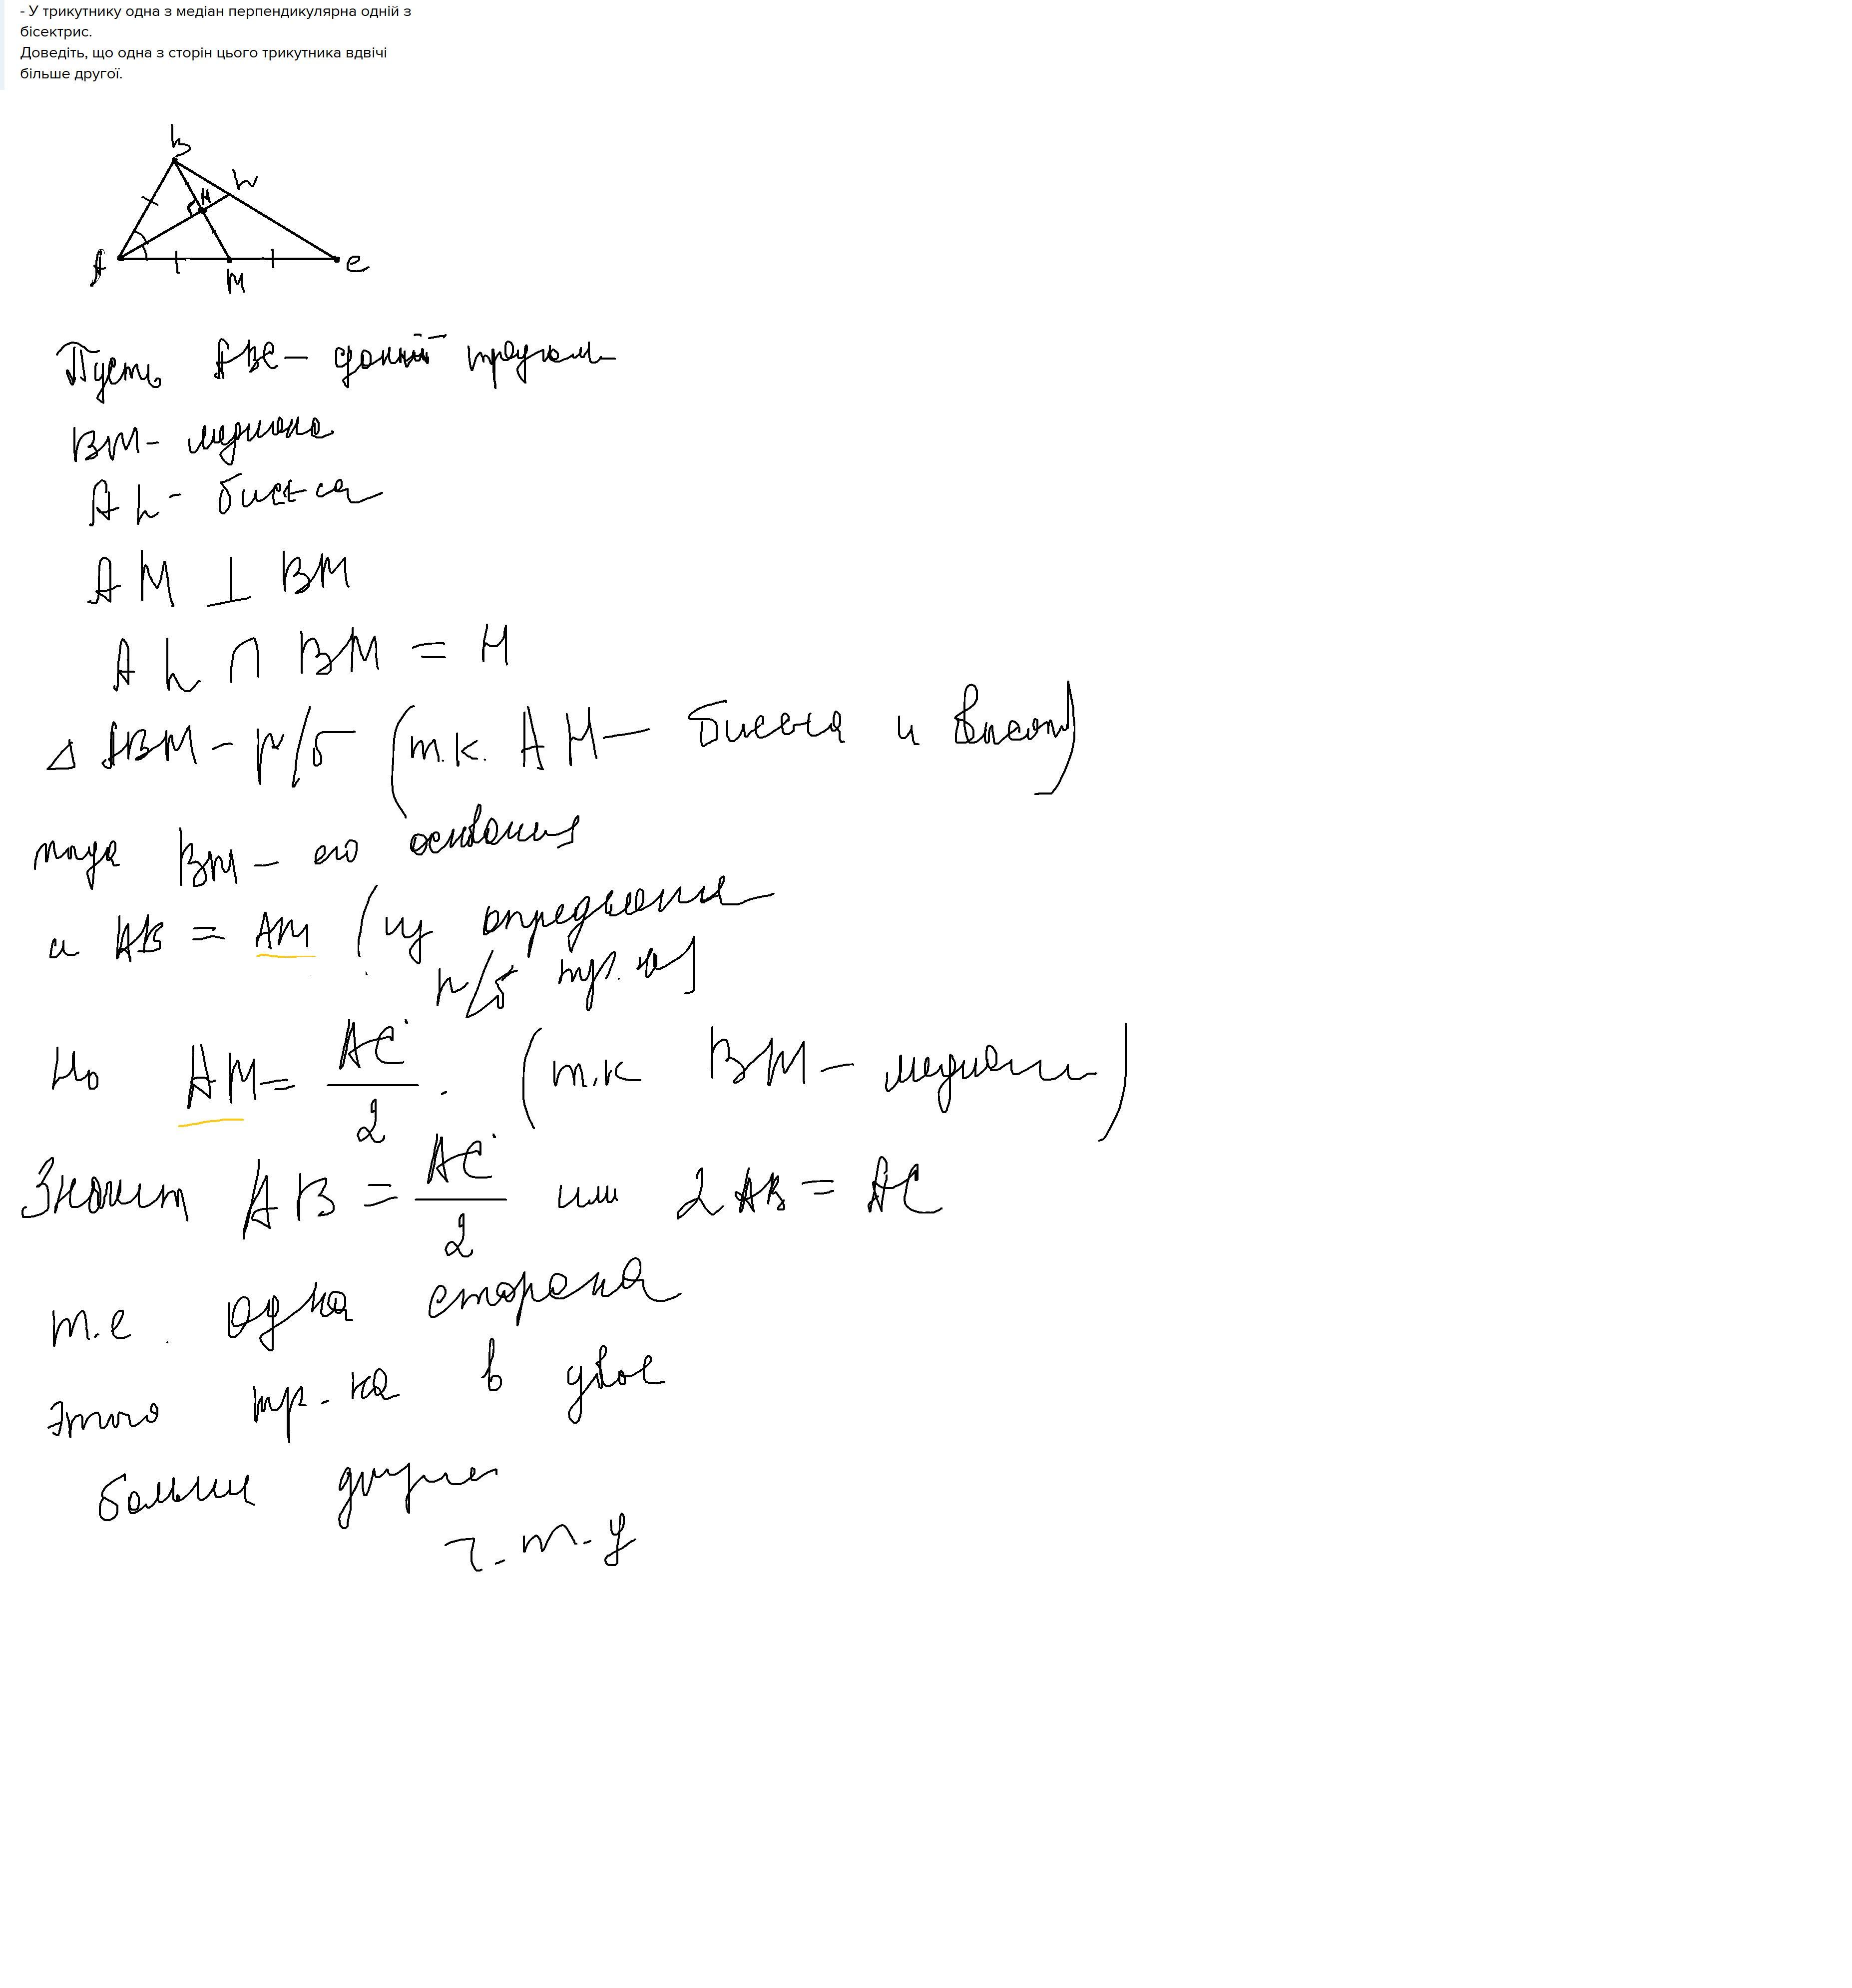 - У трикутнику одна з медіан перпендикулярна одній з
бісектрис.
Доведіть, що одна з сторін цього трикутника вдвічі
більше другої.
B
L
H
A
M
C
Пусть ABC - даний треугольн
BM - медиана
AL - бисс-са
AH ⊥ BM
AL ∩ BM = H
Δ ABM - р/б (т.к. AH - биссе-са и высот)
тогда BM - его основания
и AB = AM (из определения
р/б тр.-ка)
Но AM = AC/2. (т.к BM - медиана)
Значит AB = AC/2 или 2AB = AC
т.е. одна сторона
этого тр-ка в двое
больше другой
ч.т.д